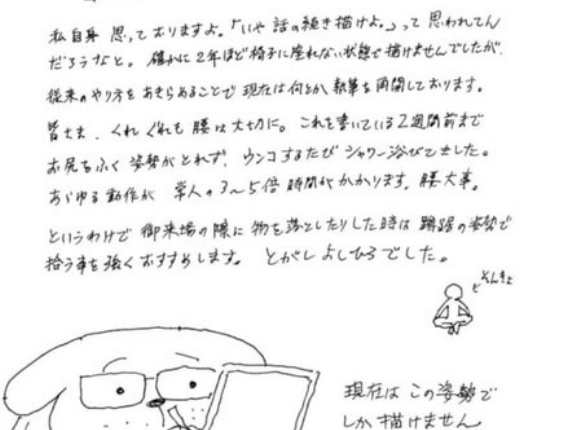 私自身 思っておりますよ。「いや 話の続き描けよ。」って 思われてん
だろうなと。 確かに 2年ほど椅子に座れない状態で描けませんでしたが、
従来のやり方を あきらめることで 現在は何とか 執筆を 再開しております。
皆さま、くれぐれも 腰は大切に。 これを書いている2週間前まで
お尻をふく 姿勢がとれず、ウンコするたび シャワー浴びてました。
あらゆる動作が 常人の3〜5倍 時間がかかります。腰大事。
というわけで 御来場の際に 物を落としたりした時は 蹲踞の姿勢で
拾う事を強くおすすめします。 とがし よしひろ でした。
そんきょ
現在は この姿勢で
しか 描けません